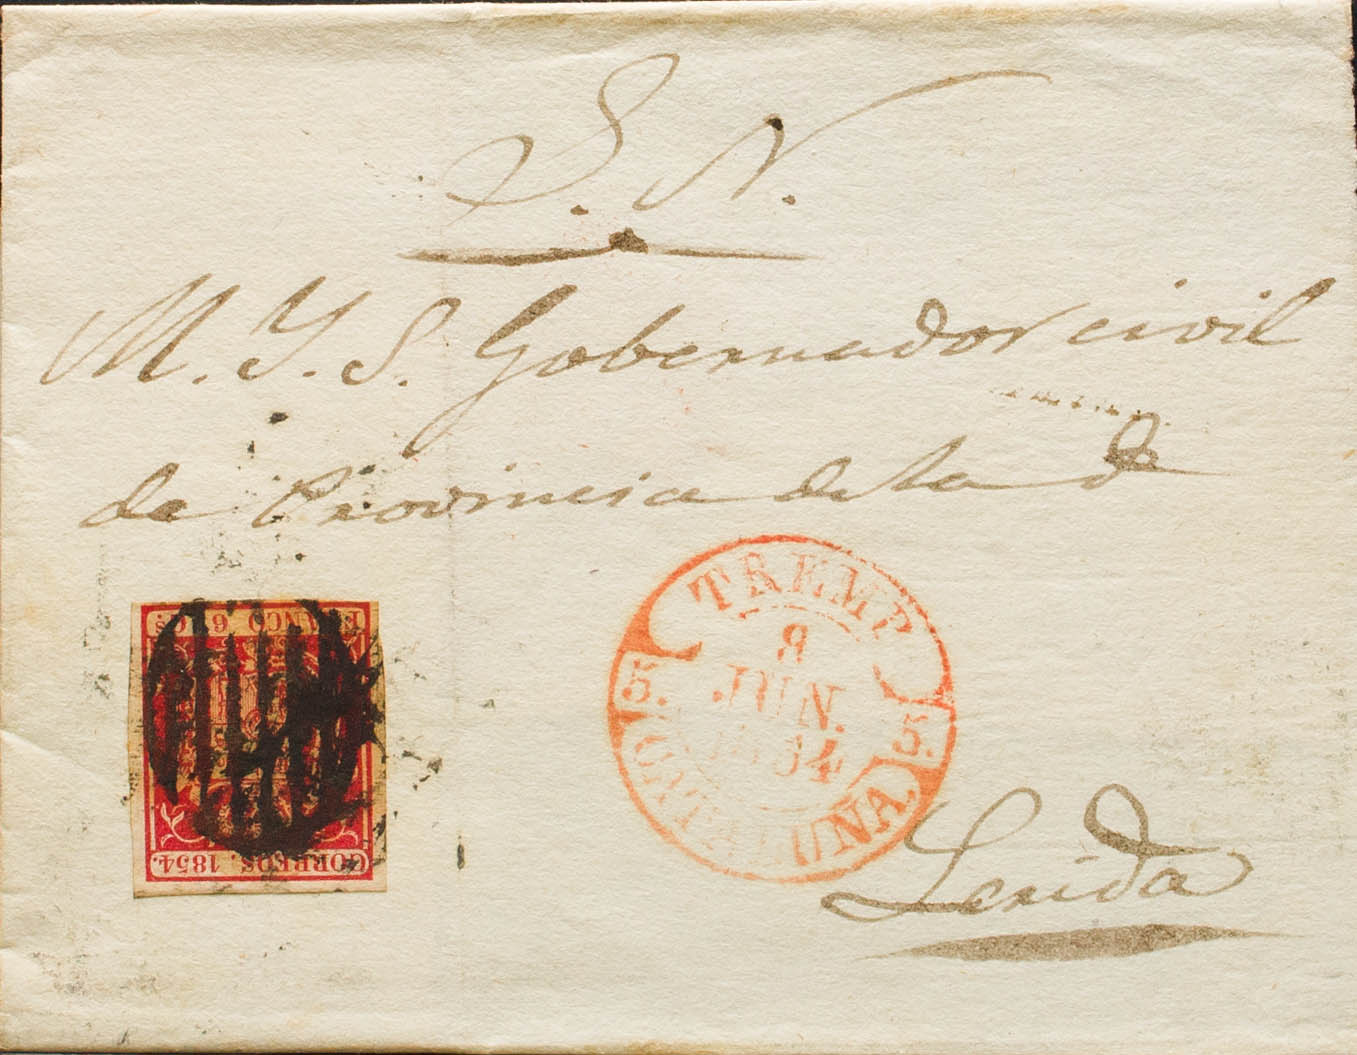 S. N.
M. Y. S. Gobernador civil
de Provincia de la de
TREMP
8
JUN.
1854
5. 5.
CATALUÑA.
Lerida
CORREOS. 1854.
FRANCO 6 Cs.